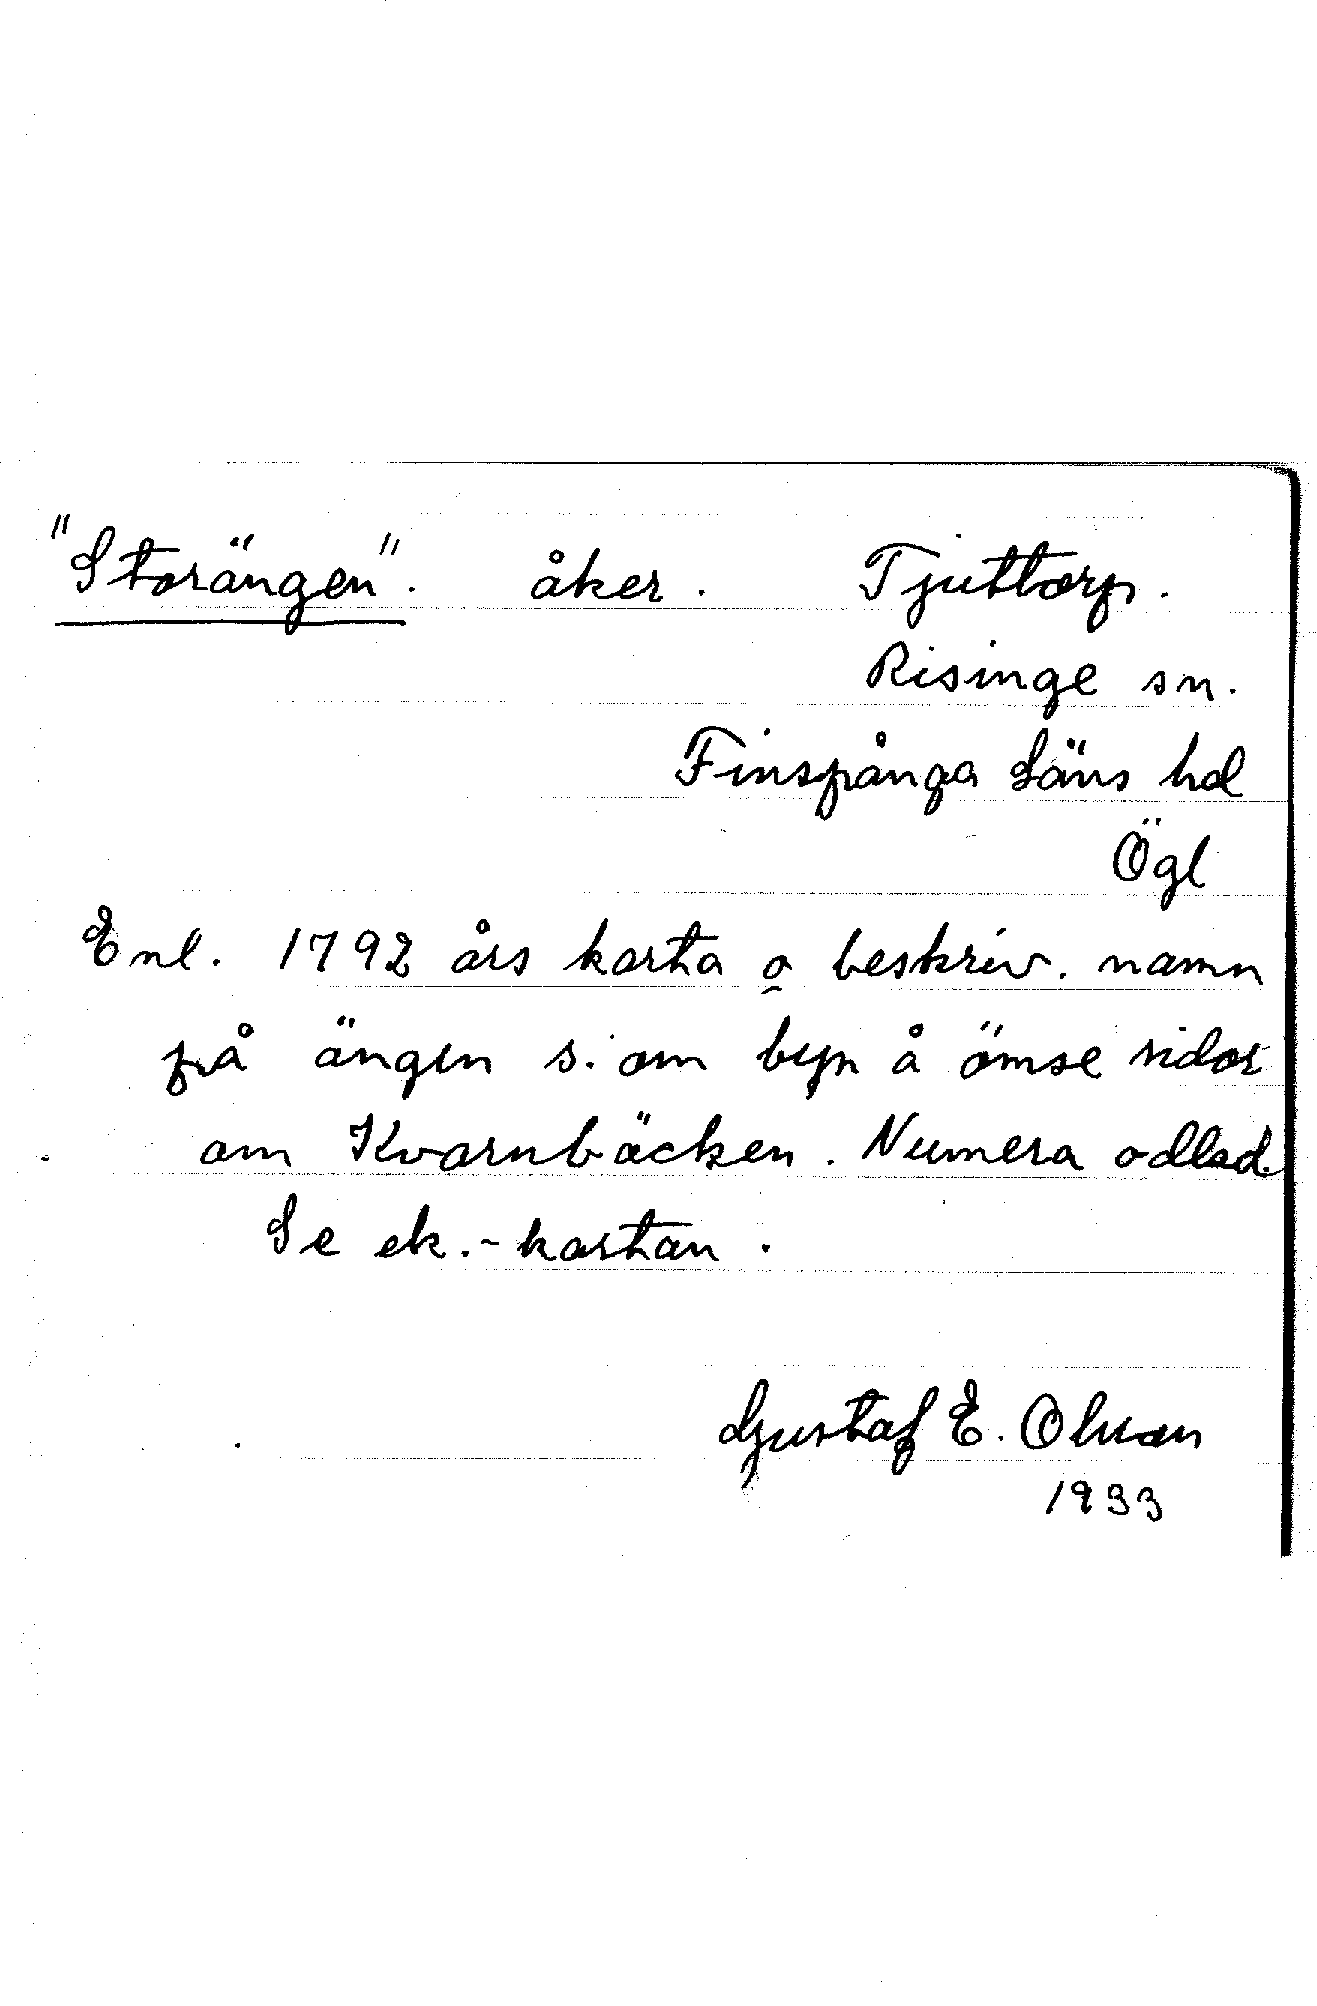 "Storängen". åker. Tjuttorp.
Risinge sn.
Finspånga Läns hd
Ögl
Enl. 1792 års karta o beskriv. namn
på ängen s. om byn å ömse sidor
om Kvarnbäcken. Numera odlad.
Se ek.-kartan.
Gustaf E. Olsson
1933